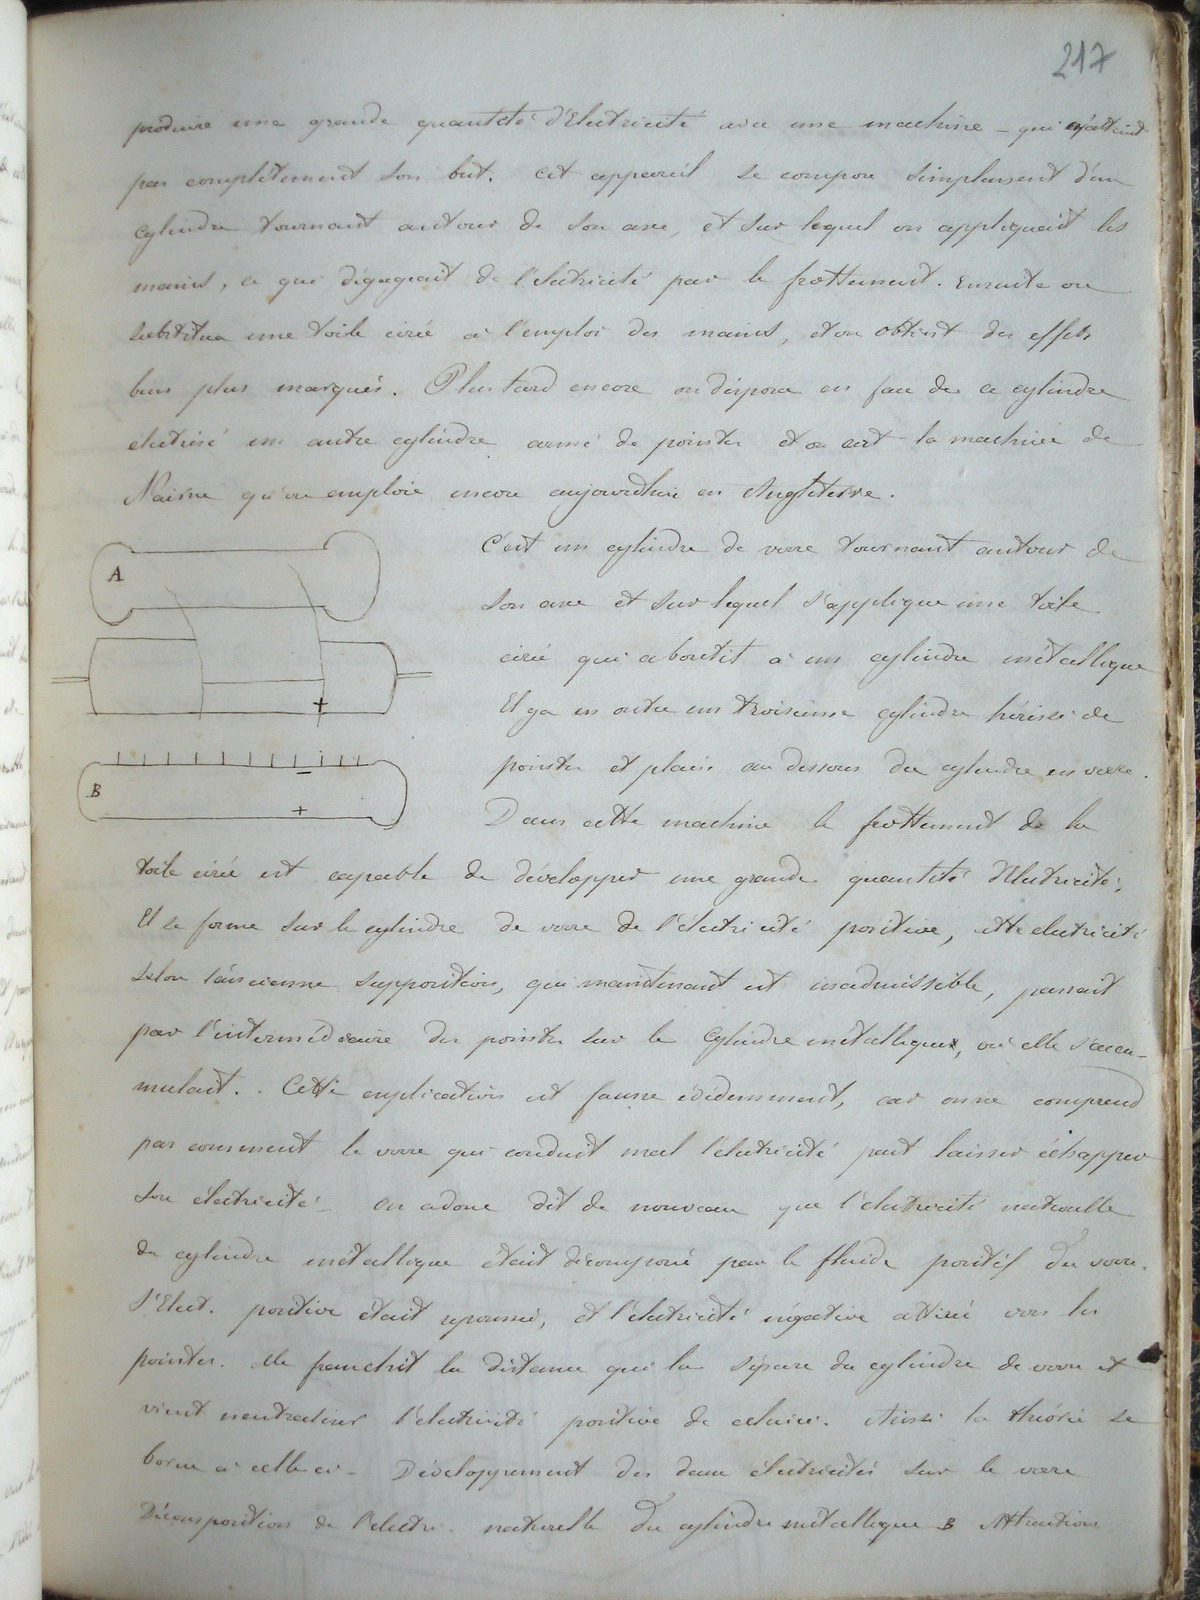 217
produire une grande quantité d'Electricité avec une machine - qui n'atteint
pas complètement son but. Cet appareil se compose simplement d'un
cylindre tournant autour de son axe, et sur lequel on appliquait les
mains, ce qui dégageait de l'électricité par le frottement. Ensuite on
substitua une toile cirée à l'emploi des mains, et on obtient des effets
bien plus marqués. Plus tard encore on disposa en face de ce cylindre
électrisé un autre cylindre armé de pointes et on eut la machine de
Nairne qu'on emploie encore aujourd'hui en Angleterre.
C'est un cylindre de verre tournant autour de
A
son axe et sur lequel s'applique une toile
cirée qui aboutit à un cylindre métallique
Il y a en outre un troisième cylindre hérissé de
+
pointes et placé au dessous du cylindre en verre.
-
B
+
Dans cette machine le frottement de la
toile cirée est capable de développer une grande quantité d'Electricité;
Il se forme sur le cylindre de verre de l'électricité positive, cette electricité
selon l'ancienne supposition, qui maintenant est inadmissible, passait
par l'intermédiaire des pointes sur le Cylindre métallique, où elle s'accu-
mulait. Cette explication est fausse évidemment, car on ne comprend
pas comment le verre qui conduit mal l'électricité peut laisser échapper
son électricité - On a donc dit de nouveau que l'électricité naturelle
du cylindre métallique était décomposé par le fluide positif du verre.
l'Elect. positive était repoussé, et l'électricité négative attirée vers les
pointes. elle franchit la distance qui la sépare du cylindre de verre et
vient neutraliser l'électricité positive de celui ci. Ainsi la théorie se
borne à celle ci - Développement des deux électricités sur le verre
Décomposition de l'électr. naturelle du cylindre métallique B Attraction